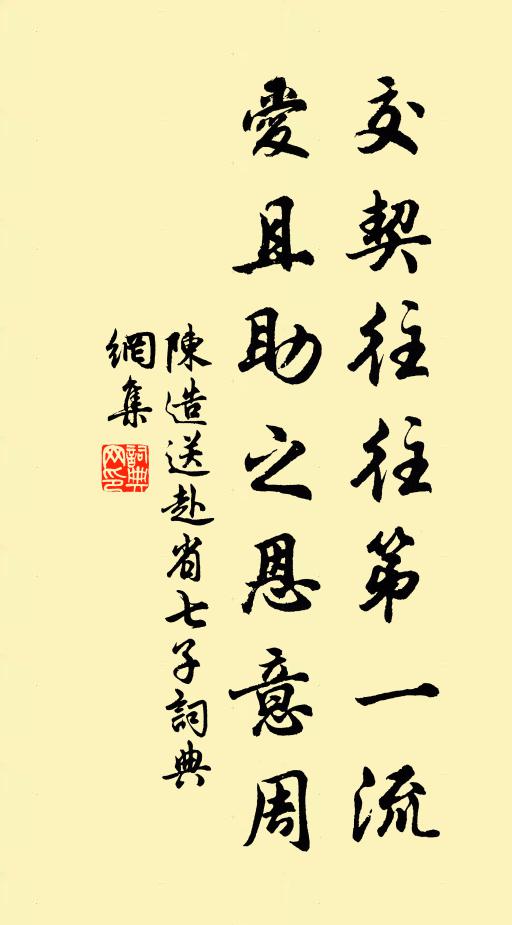 交契往往第一流
愛且助之恩意周
陳造送赴省七子詞典
網集
詞典網印